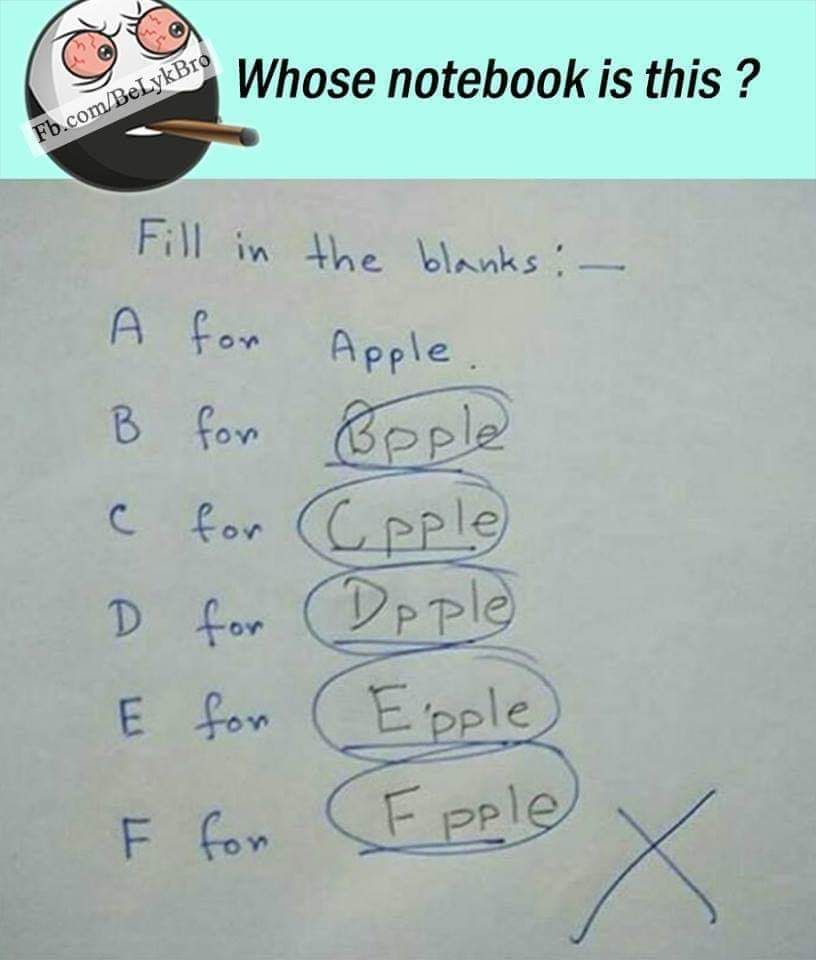 Fb.com/BeLykBro
Whose notebook is this ?
Fill in the blanks :—
A for Apple.
B for Bpple
C for Cpple
D for Dpple
E for Epple
F for Fpple